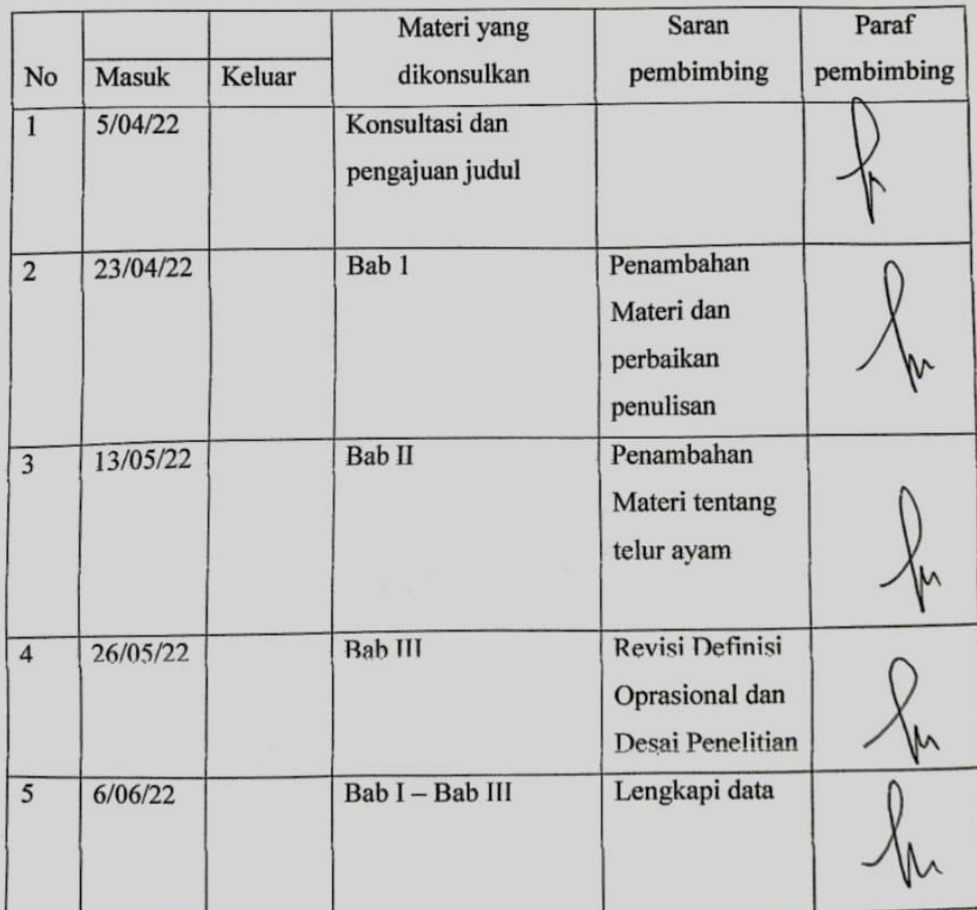 No
Masuk
Keluar
Materi yang
dikonsulkan
Saran
pembimbing
Paraf
pembimbing
1
5/04/22
Konsultasi dan
pengajuan judul
2
23/04/22
Bab 1
Penambahan
Materi dan
perbaikan
penulisan
3
13/05/22
Bab II
Penambahan
Materi tentang
telur ayam
4
26/05/22
Bab III
Revisi Definisi
Oprasional dan
Desai Penelitian
5
6/06/22
Bab I – Bab III
Lengkapi data